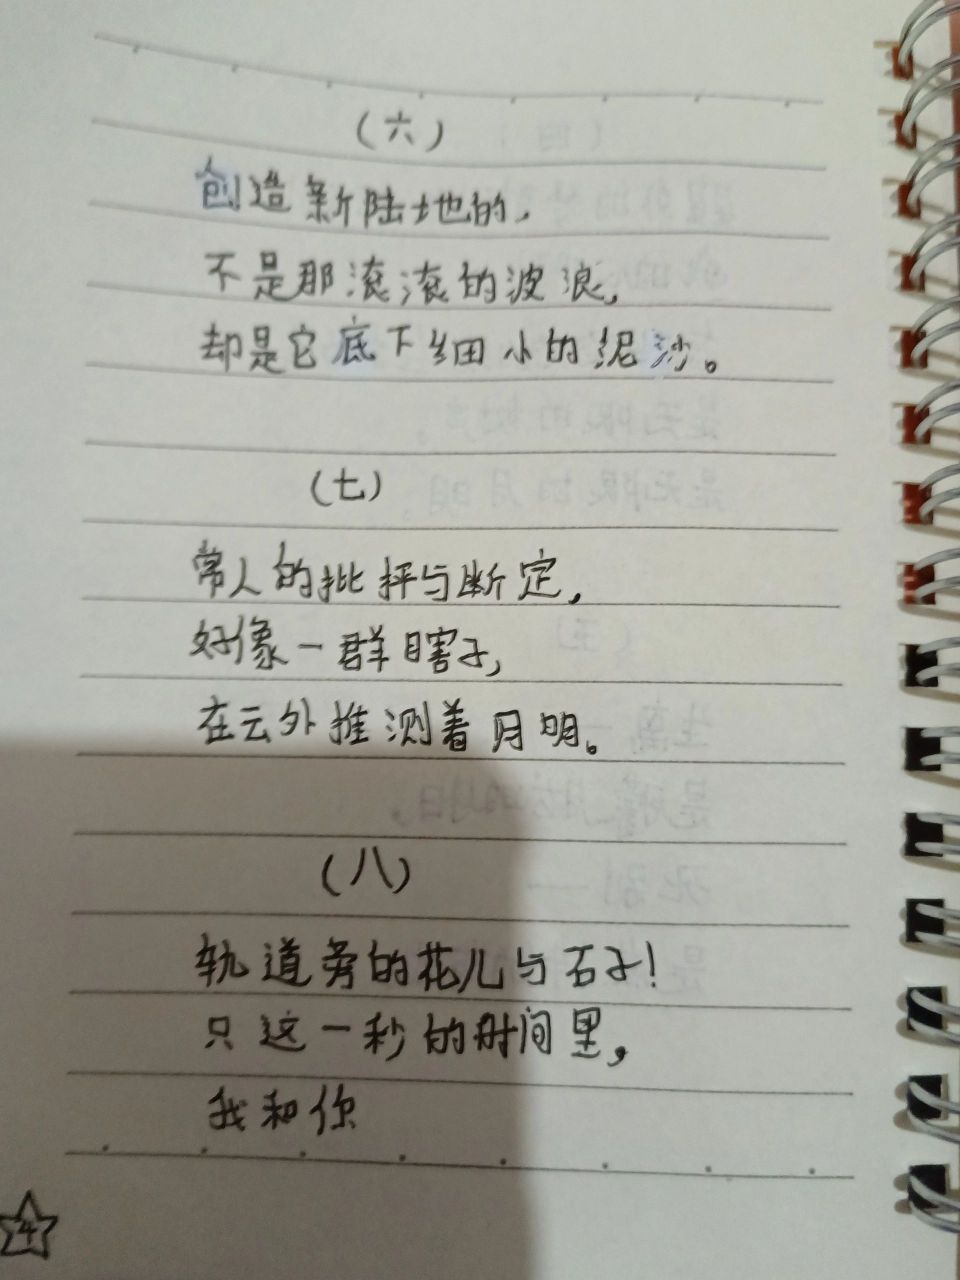 （六）
创造新陆地的，
不是那滚滚的波浪，
却是它底下细小的泥沙。
（七）
常人的批抨与断定，
好像一群瞎子，
在云外推测着月明。
（八）
轨道旁的花儿与石子！
只这一秒的时间里，
我和你
4